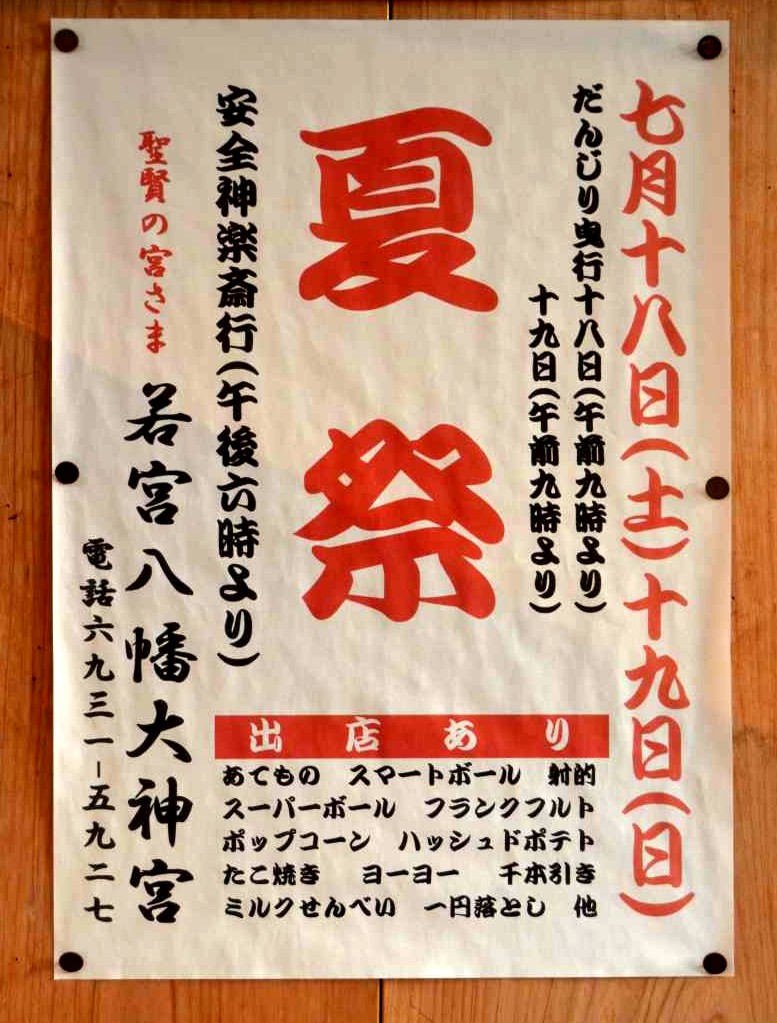 七月十八日(土)十九日(日)
だんじり曳行十八日(午前九時より)
十九日(午前九時より)
夏祭
安全神楽斎行(午後六時より)
聖賢の宮さま
若宮八幡大神宮
電話六九三一-五九二七
出店あり
あてもの スマートボール 射的
スーパーボール フランクフルト
ポップコーン ハッシュドポテト
たこ焼き ヨーヨー 千本引き
ミルクせんべい 一円落とし 他